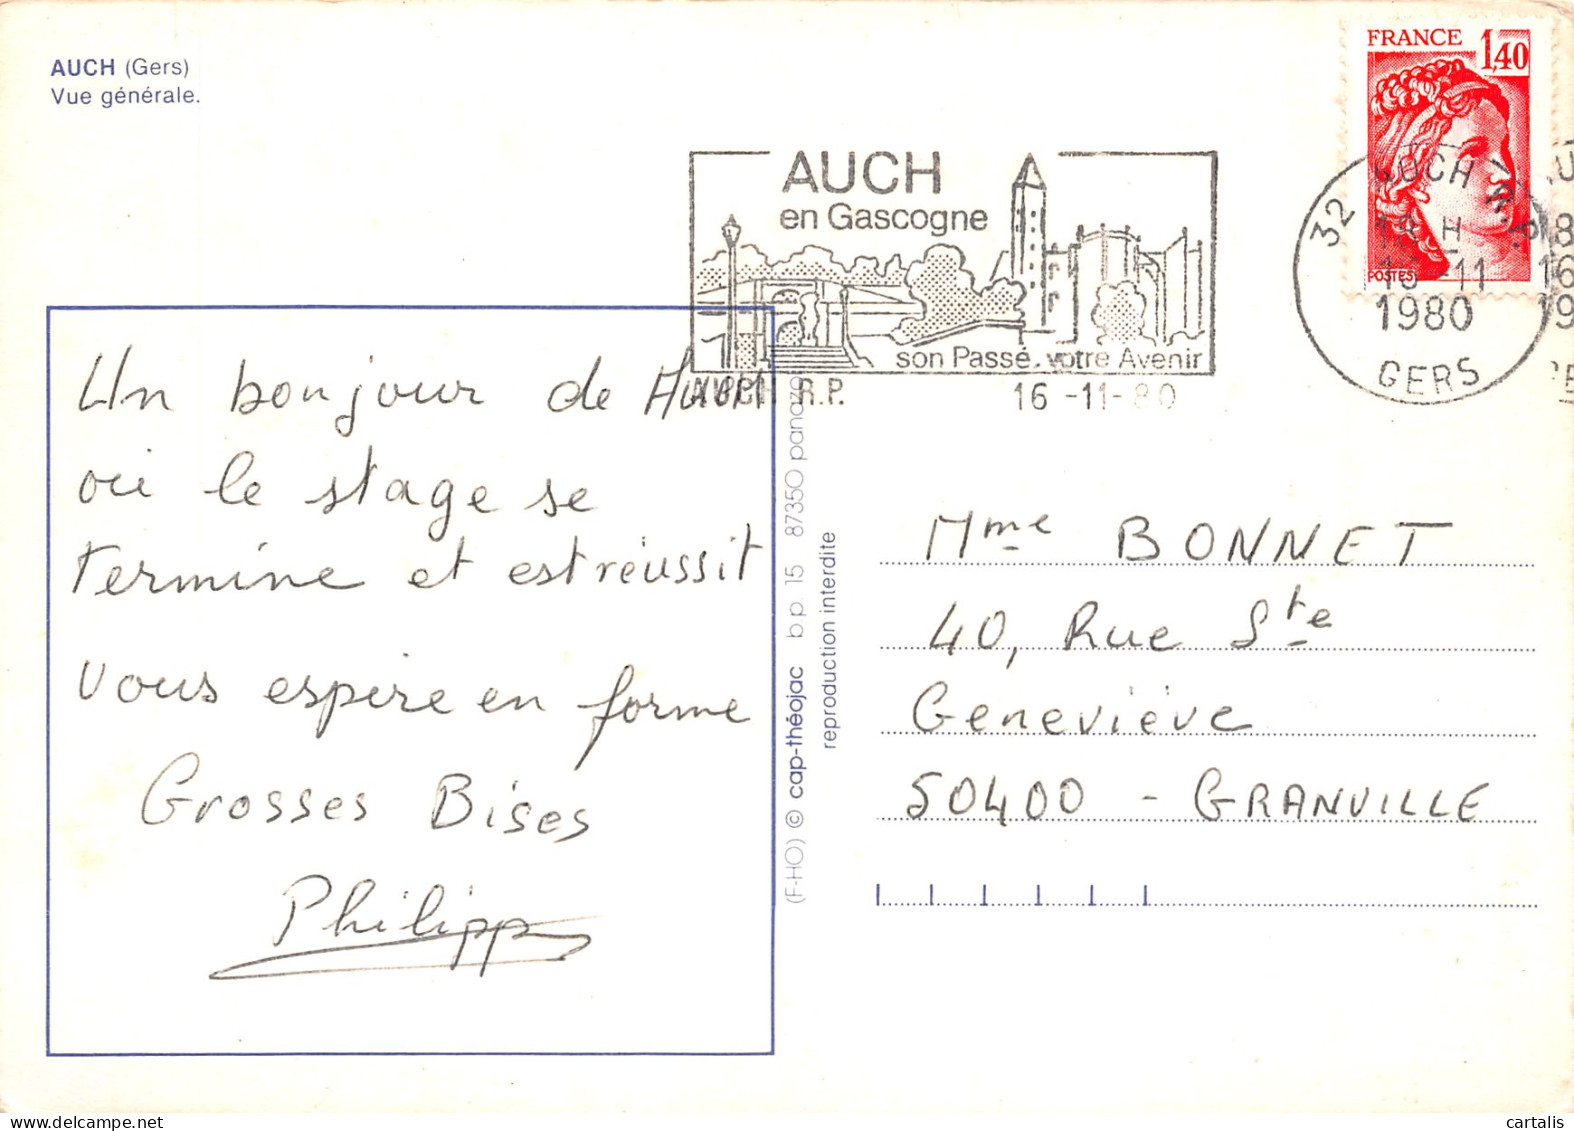 AUCH (Gers)
Vue générale.
FRANCE 1,40
POSTES
AUCH
en Gascogne
son Passé, votre Avenir
AUCH R.P.
16 -11- 80
32 AUCH R.P.
18 H
16 -11
1980
GERS
Un bonjour de Auch
où le stage se
termine et est réussit
Vous espère en forme
Grosses Bises
Philipp
(F-HO) © cap-théojac b.p. 15 87350 panazol
reproduction interdite
Mme BONNET
40, Rue Ste
Geneviève
50400 - GRANVILLE
cartalis
delcampe.net